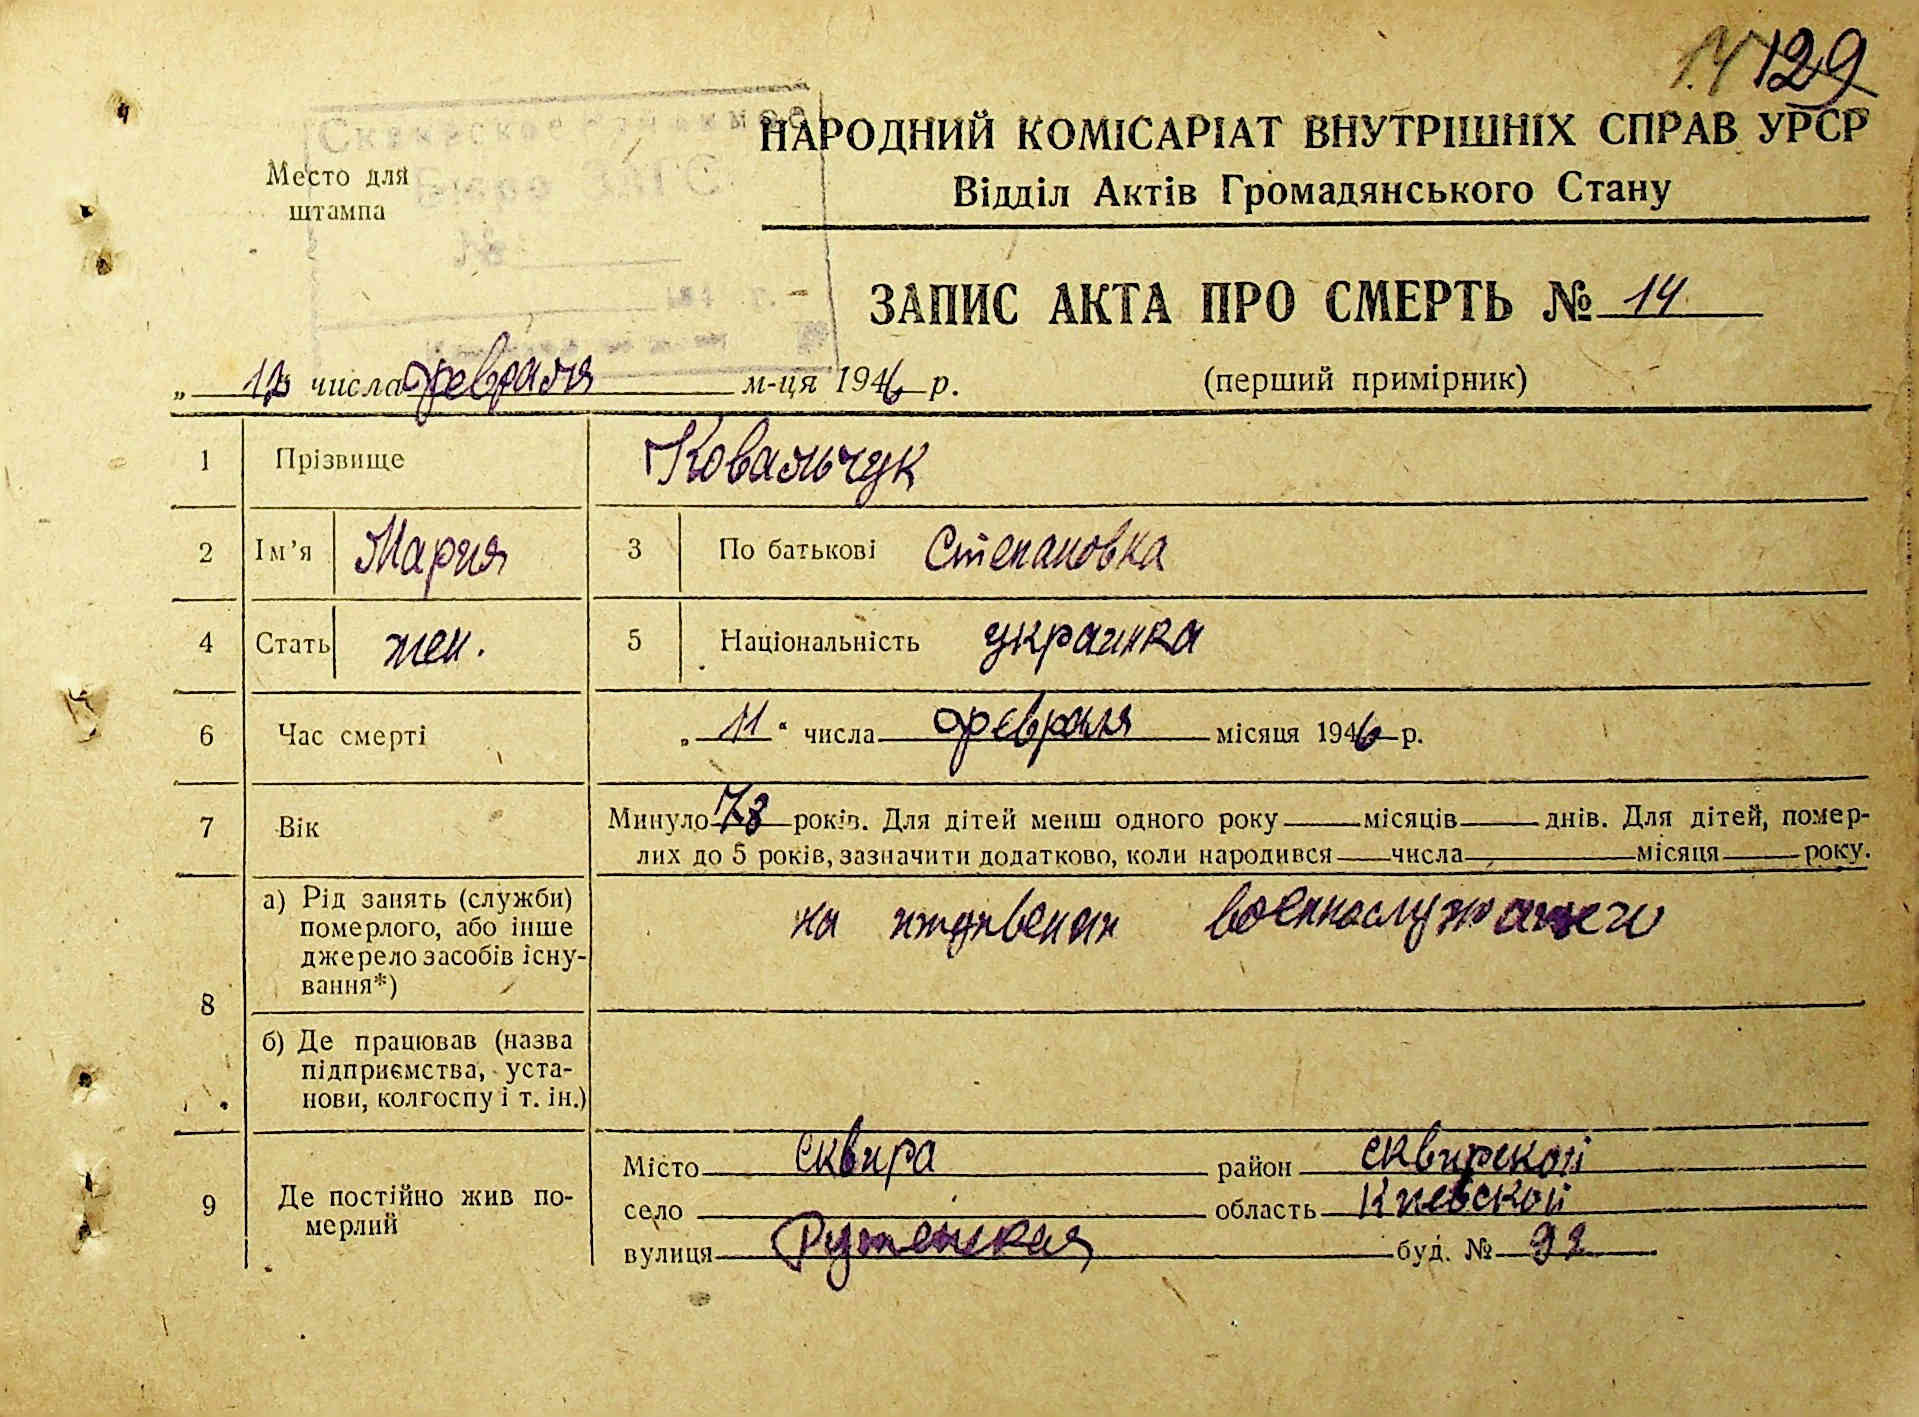 14 129
Сквирское районное
Бюро ЗАГС
№
194 г.
Место для
штампа
НАРОДНИЙ КОМІСАРІАТ ВНУТРІШНІХ СПРАВ УРСР
Відділ Актів Громадянського Стану
ЗАПИС АКТА ПРО СМЕРТЬ № 14
„ числа февраля м-ця 1946 р.
(перший примірник)
1 Прізвище Ковальчук
2 Ім’я Мария 3 По батькові Степановна
4 Стать жен. 5 Національність украинка
6 Час смерті „ 11 “ числа февраля місяця 1946 р.
7 Вік Минуло 78 років. Для дітей менш одного року місяців днів. Для дітей, помер-
лих до 5 років, зазначити додатково, коли народився числа місяця року.
8 а) Рід занять (служби)
померлого, або інше
джерело засобів існу-
вання*)
на иждивении военнослужащего
б) Де працював (назва
підприємства, уста-
нови, колгоспу і т. ін.)
9 Де постійно жив по-
мерлий
Місто сквира район сквирской
село область Киевской
вулиця Руженская буд. № 92